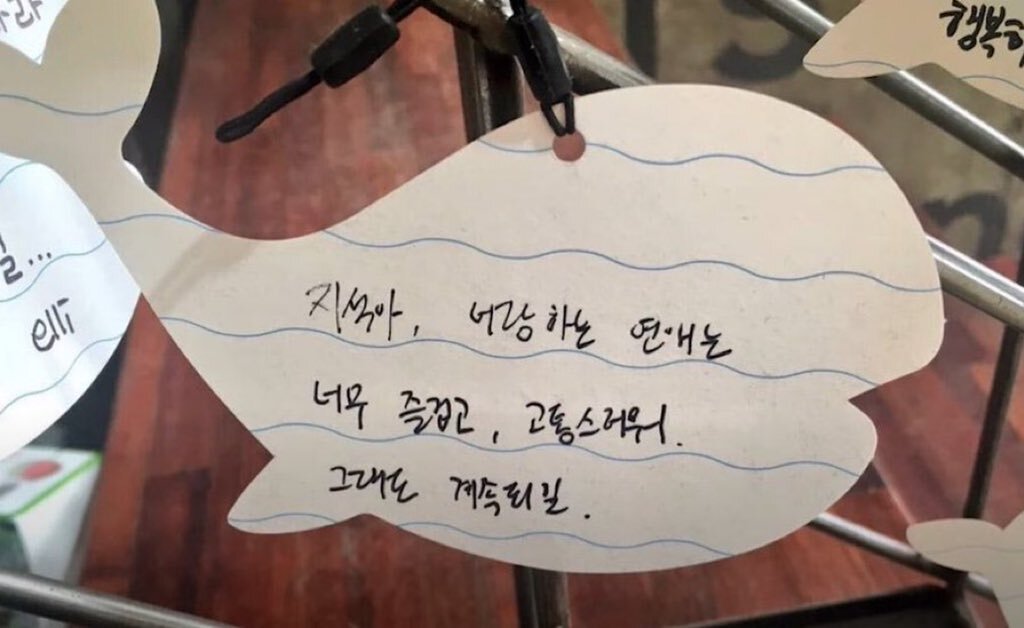 지석아, 너랑 하는 연애는
너무 즐겁고, 고통스러워.
그래도 계속되길.
elli
행복하